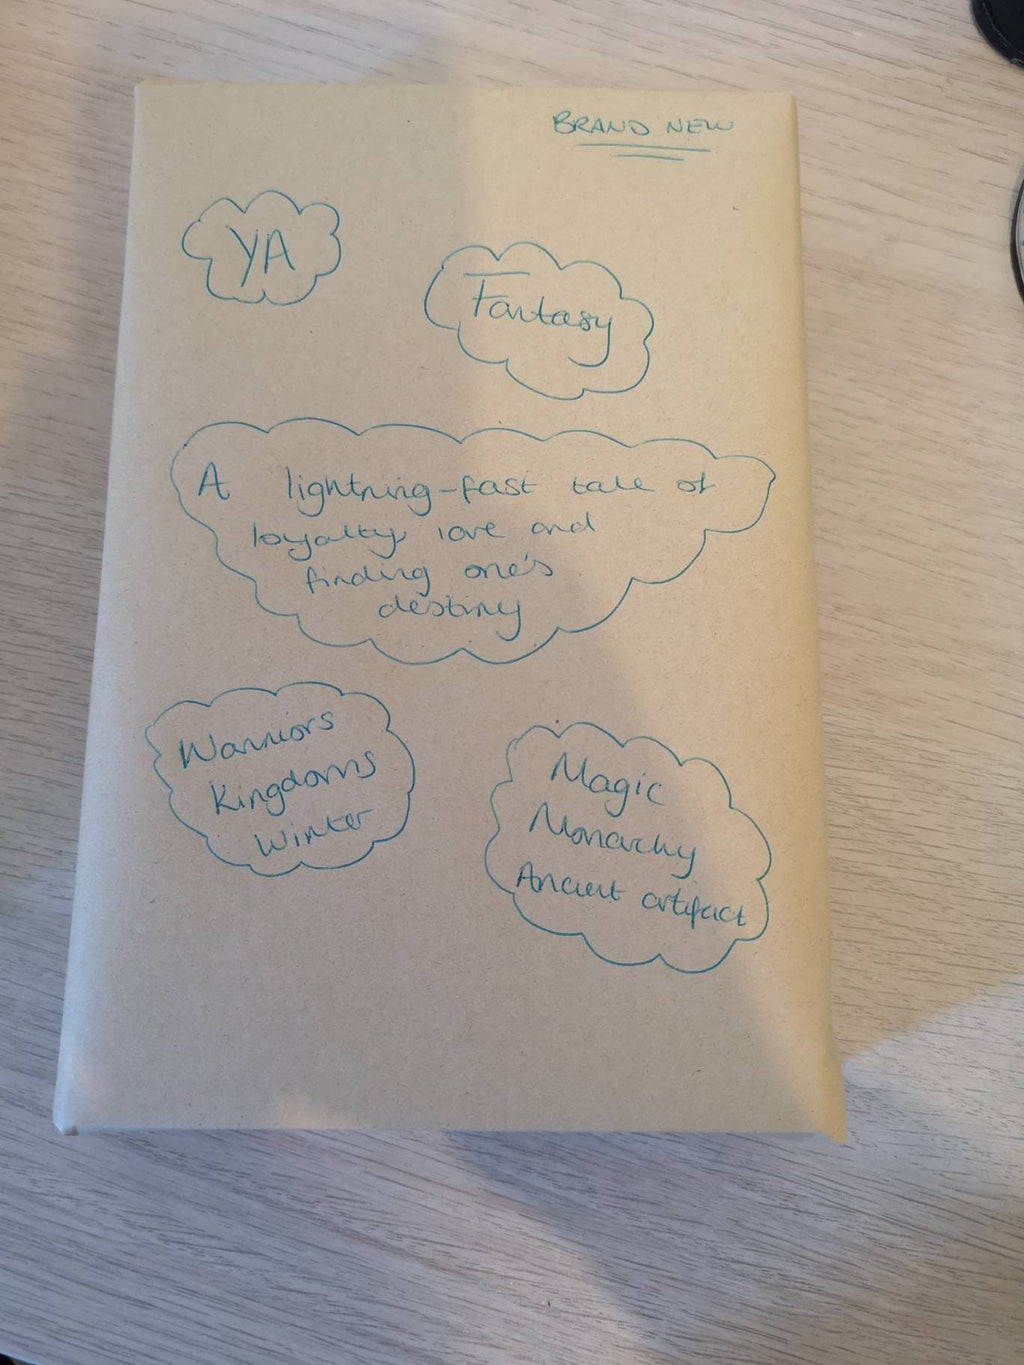 BRAND NEW
YA
Fantasy
A lightning-fast tale of
loyalty, love and
finding one's
destiny
Warriors
Kingdoms
Winter
Magic
Monarchy
Ancient artifact